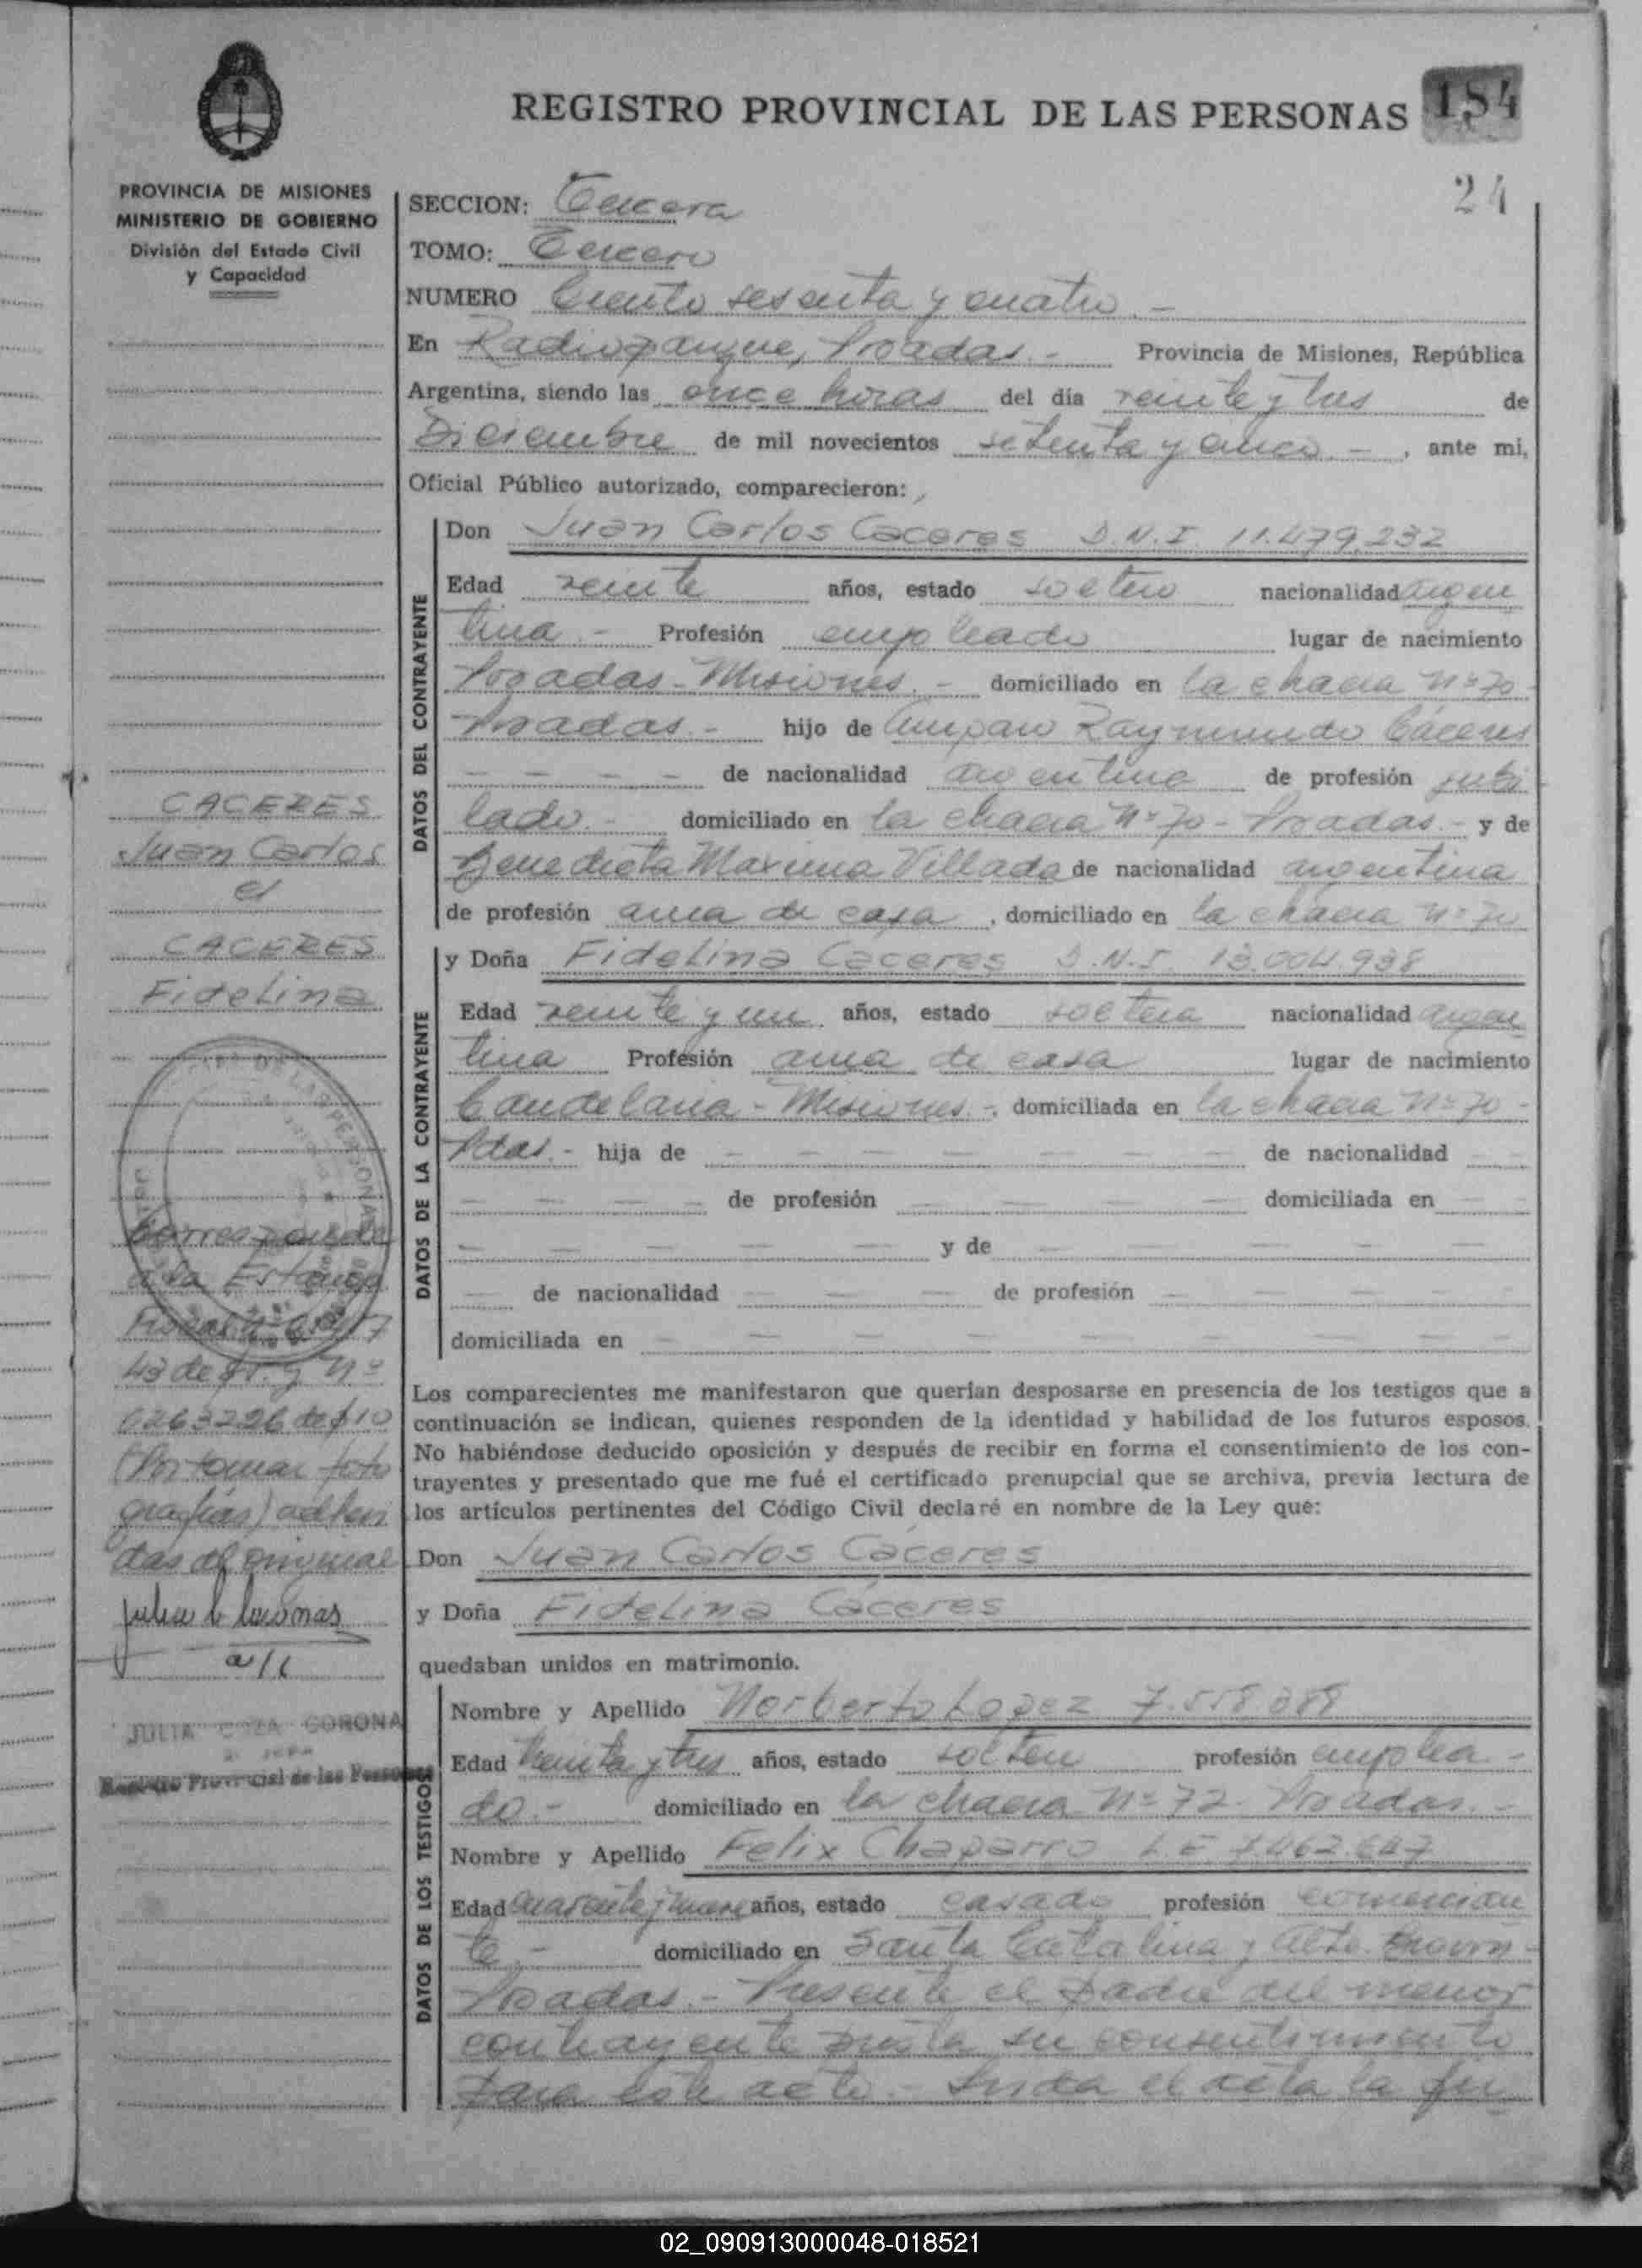 REGISTRO PROVINCIAL DE LAS PERSONAS 184
24
PROVINCIA DE MISIONES
MINISTERIO DE GOBIERNO
División del Estado Civil
y Capacidad
SECCION: Tercera
TOMO: Tercero
NUMERO Ciento sesenta y cuatro -
En Radioparque, Posadas - Provincia de Misiones, República
Argentina, siendo las once horas del día veinte y tres de
Diciembre de mil novecientos setenta y cinco - , ante mi,
Oficial Público autorizado, comparecieron:
DATOS DEL CONTRAYENTE
Don Juan Carlos Caceres D.N.I. 11.479.232
Edad veinte años, estado soltero nacionalidad argen
tina - Profesión empleado lugar de nacimiento
Posadas - Misiones. - domiciliado en la chacra Nº 70 -
Posadas. - hijo de Amparo Raymundo Cáceres
- - - - de nacionalidad argentina de profesión jubi
lado. - domiciliado en la chacra Nº 70 - Posadas. - y de
Benedicta Maxima Villada de nacionalidad argentina
de profesión ama de casa , domiciliado en la chacra Nº 70
DATOS DE LA CONTRAYENTE
y Doña Fidelina Caceres D.N.I. 13.004.938
Edad veinte y un años, estado soltera nacionalidad argen
tina Profesión ama de casa lugar de nacimiento
Candelaria - Misiones. -, domiciliada en la chacra Nº 70 -
Pdas. - hija de - - - - - - de nacionalidad -
- - - de profesión - - - - domiciliada en - -
- - - - - y de - - - - -
- de nacionalidad - - - de profesión - - - -
domiciliada en - - - - - - - - -
Los comparecientes me manifestaron que querían desposarse en presencia de los testigos que a
continuación se indican, quienes responden de la identidad y habilidad de los futuros esposos.
No habiéndose deducido oposición y después de recibir en forma el consentimiento de los con-
trayentes y presentado que me fué el certificado prenupcial que se archiva, previa lectura de
los artículos pertinentes del Código Civil declaré en nombre de la Ley que:
Don Juan Carlos Cáceres
y Doña Fidelina Cáceres
quedaban unidos en matrimonio.
DATOS DE LOS TESTIGOS
Nombre y Apellido Norberto Lopez 7.558.388
Edad treinta y tres años, estado soltero profesión emplea -
do - domiciliado en la chacra Nº 72 - Posadas. -
Nombre y Apellido Felix Chaparro L.E. 7.462.647
Edad cuarenta y nueve años, estado casado profesión comercian
te - domiciliado en Santa Catalina y Alte. Brown -
Posadas. - Presente el padre del menor
contrayente presta su consentimiento
para este acto. - el acta la fir
CACERES
Juan Carlos
c/
CACERES
Fidelina
Corresponde
a la Estampa
43 de $1. y Nº
0263226 de $10
(Por tomar foto
grafías) adheri
das al original
a/c
JULIA CORONA
Registro Provincial de las Personas
02_090913000048-018521